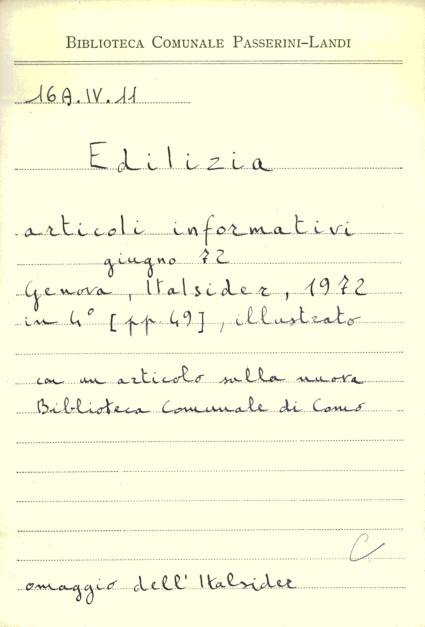 BIBLIOTECA COMUNALE PASSERINI-LANDI
16A.IV.11
Edilizia
articoli informativi
giugno 72
Genova, Italsider, 1972
in 4° [pp. 49], illustrato
con un articolo sulla nuova
Biblioteca Comunale di Como
C
omaggio dell'Italsider